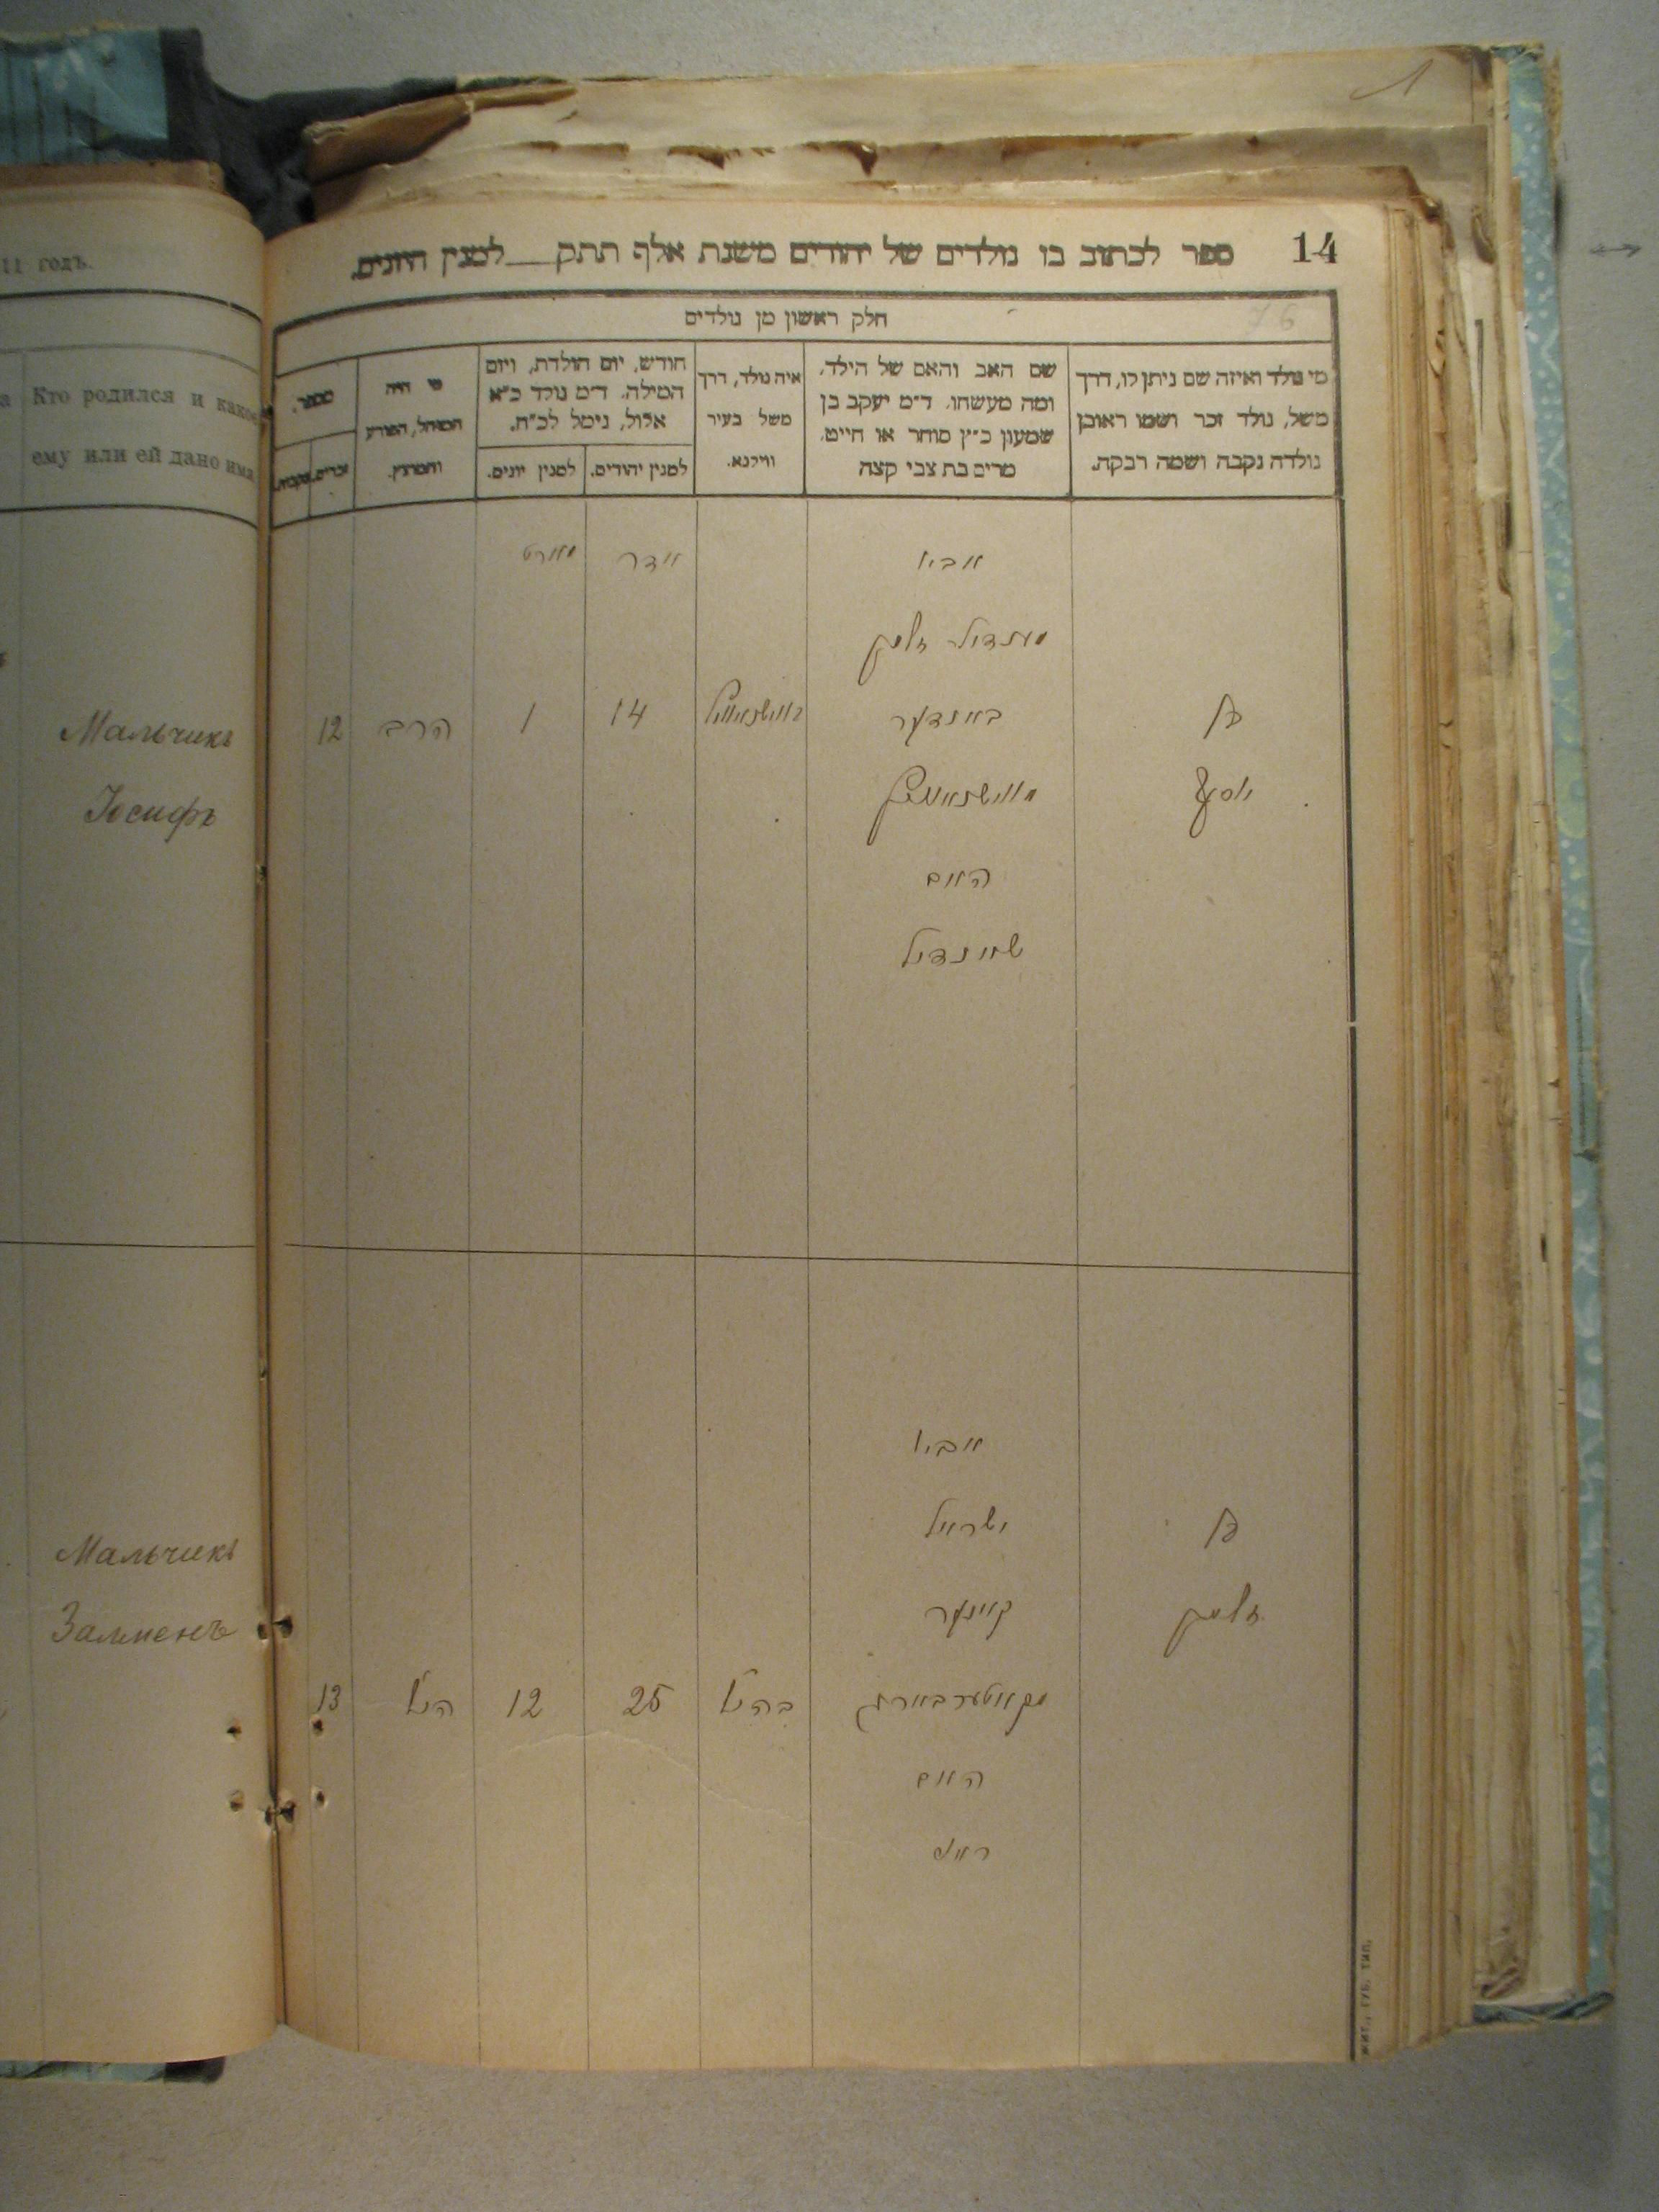 11 годъ.
Кто родился и како
ему или ей дано имя
Мальчикъ
Іосифъ
Мальчикъ
Залменъ
14
ספר לכתוב בו נולדים של יהודים משנת אלף תתק__למנין היונים.
76
חלק ראשון מן נולדים
מי נולד ואיזה שם ניתן לו, דרך
משל, נולד זכר ושמו ראובן
נולדה נקבה ושמה רבקה.
שם האב והאם של הילד,
ומה מעשהו. ד״מ יעקב בן
שמעון כ״ץ סוחר או חייט,
מרים בת צבי קצה
איה נולד, דרך
משל בעיר
ווילנא.
חודש, יום הולדת, ויום
המילה. ד״מ נולד כ״א
אלול, נימל לכ״ח.
למנין יהודים.
למנין יונים.
מי היה
המוהל, הפורע
והמוצץ.
מספר.
זכרים.
נקבות.
אביו
אדר
מארט
מענדיל זלמן
בן
באנדער
14
1
הרב
12
יוסף
האם
שיינדיל
אביו
בן
ישראל
זלמן
25
12
הנ״ל
13
האם
жит., губ. тип.